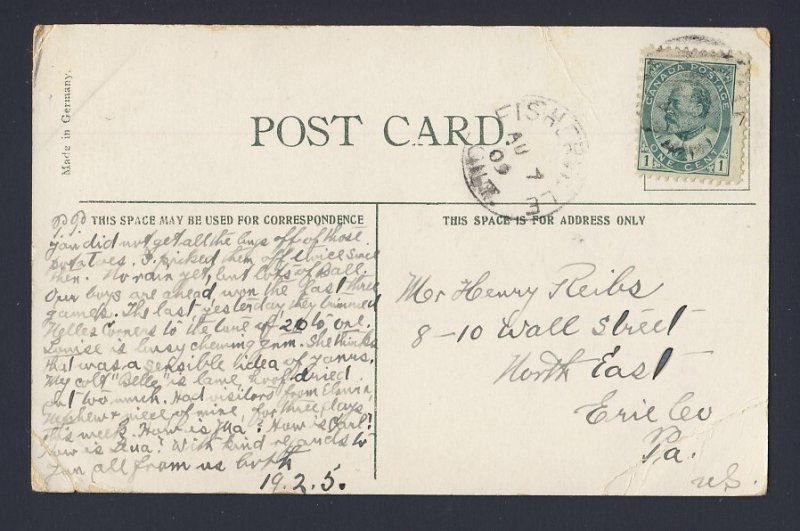 Made in Germany.
POST CARD.
FISHERVILLE
AU 7
09
ONT.
CANADA POSTAGE
1 ONE CENT 1
THIS SPACE MAY BE USED FOR CORRESPONDENCE
P.P.
You did not get all the bugs off of those
potatoes. I picked them off twice since
then. No rain yet, but lots of ball.
Our boys are ahead, won the last three
games. The last, yesterday, they trimmed
Nelles Corners to the tune of 20 to one.
Louise is busy chewing gum. She thinks
that was a sensible idea of yours.
My colt "Belle" is lame, hoof dried
out too much. Had visitors from
Nephew & niece of mine, for three days
this week. How is Ma? How is Carl?
How is With kind regards to
you all from us both
19.2.5.
THIS SPACE IS FOR ADDRESS ONLY
Mr Henry Reibs
8-10 Wall Street
North East
Erie Co
Pa.
U.S.